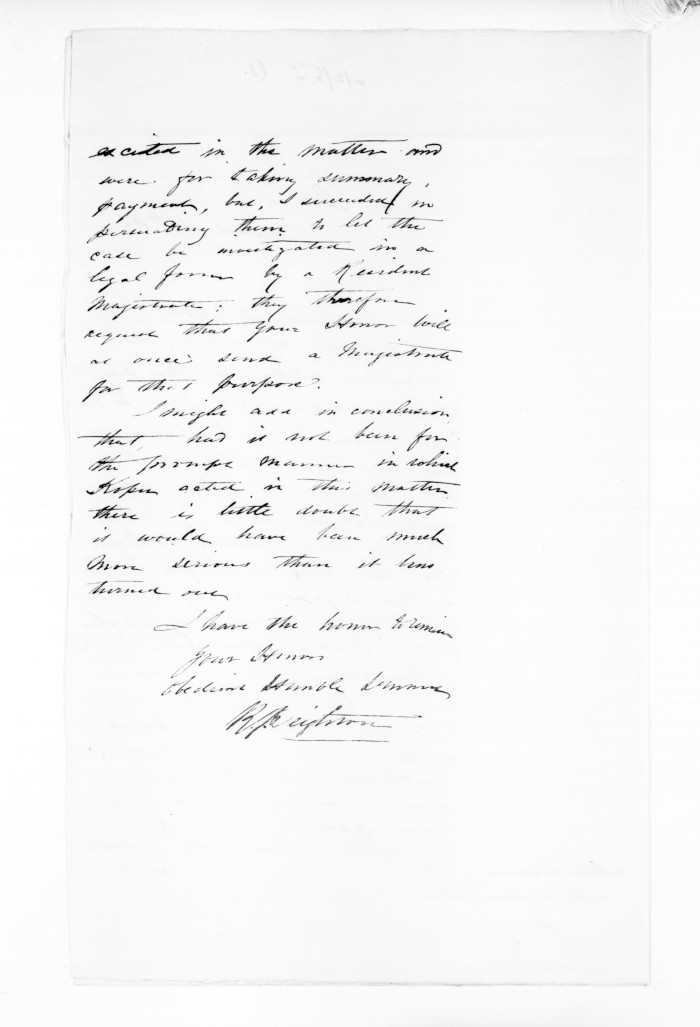 excited in the matter and
were for taking summary
payment, but, I succeeded in
persuading them to let the
case be investigated in a
legal form by a Resident
Magistrate: they therefore
request that Your Honor will
at once send a Magistrate
for that purpose.
I might add in conclusion,
that, had it not been for
the prompt manner in which
Kopu acted in this matter
there is little doubt that
it would have been much
more serious than it has
turned out
I have the honor to remain
Your Honors
Obedient Humble Servant